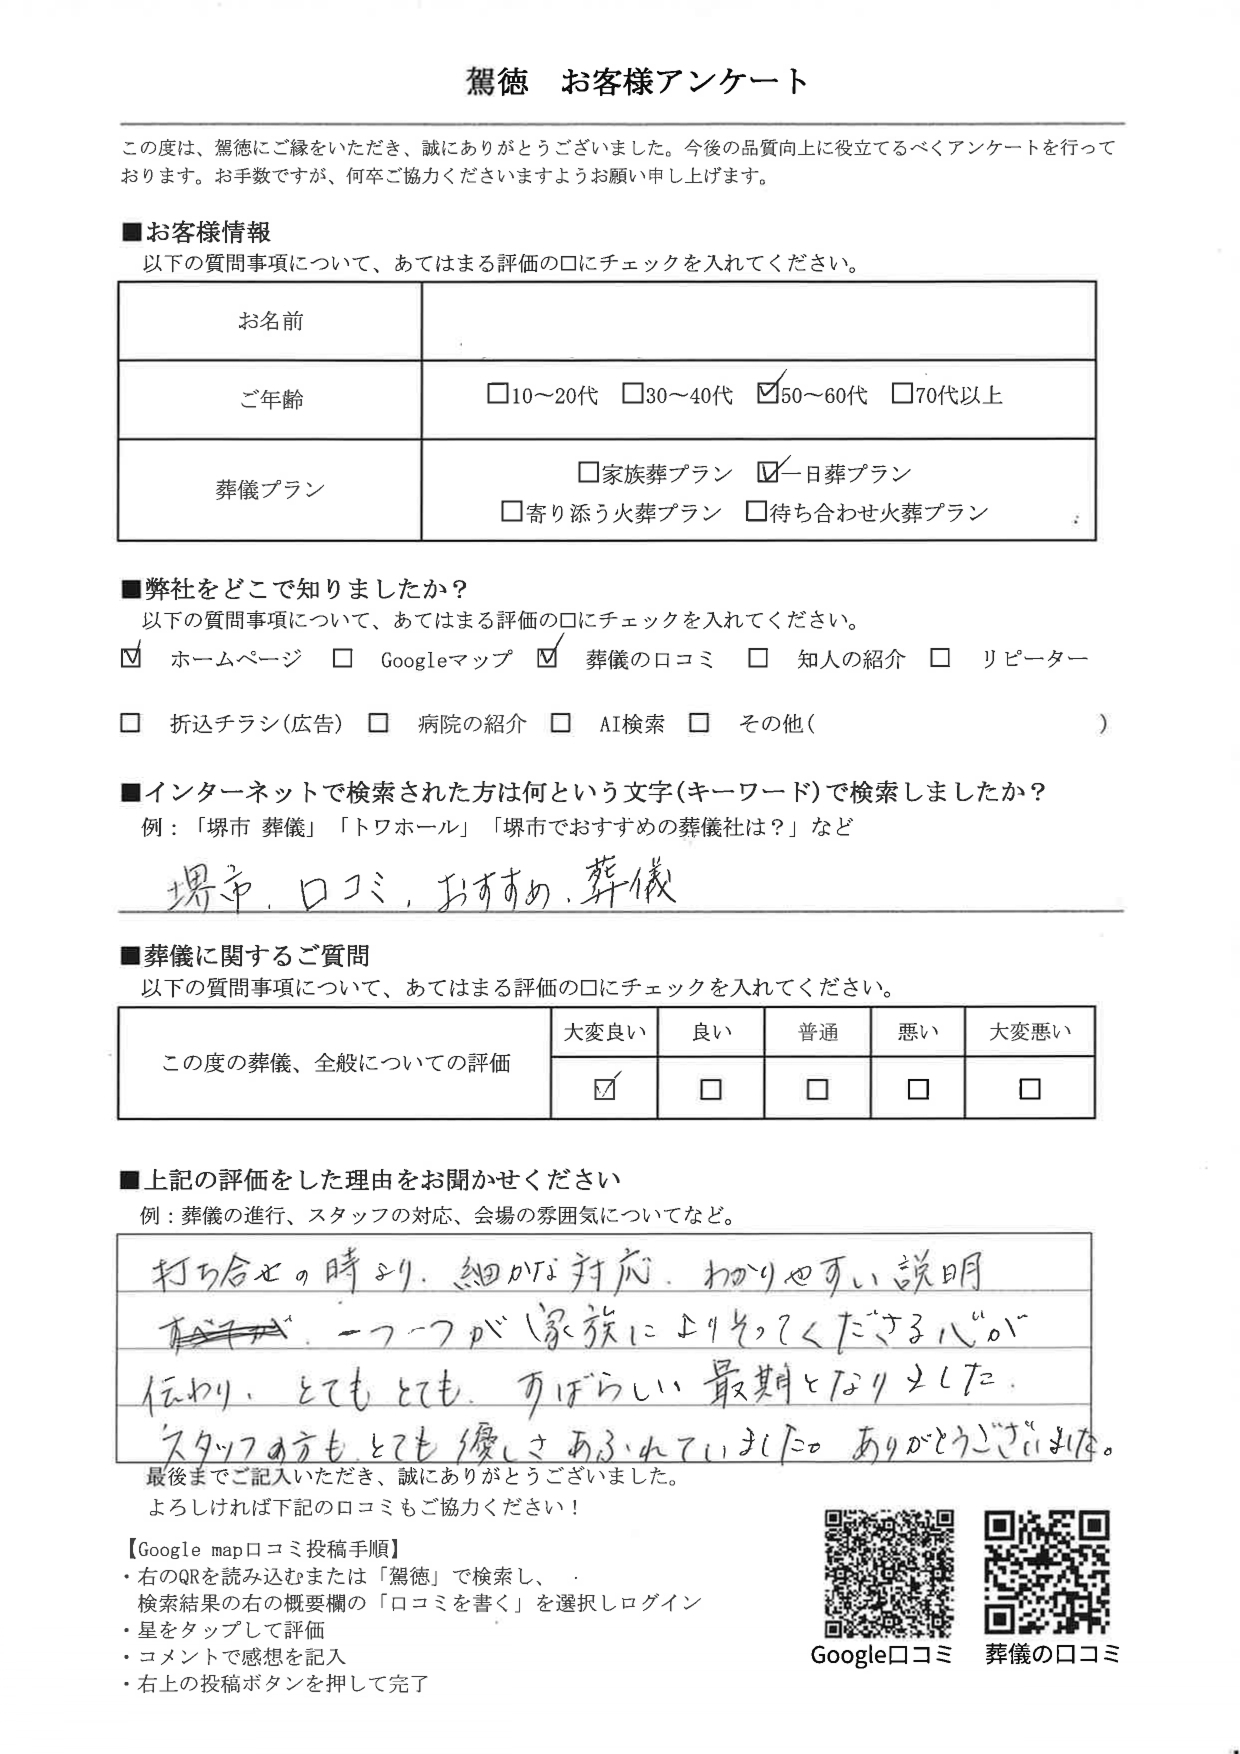 駕徳　お客様アンケート
この度は、駕徳にご縁をいただき、誠にありがとうございました。今後の品質向上に役立てるべくアンケートを行って
おります。お手数ですが、何卒ご協力くださいますようお願い申し上げます。
■お客様情報
以下の質問事項について、あてはまる評価の口にチェックを入れてください。
お名前
ご年齢
□10～20代 □30～40代 ☑50～60代 □70代以上
葬儀プラン
□家族葬プラン ☑一日葬プラン
□寄り添う火葬プラン □待ち合わせ火葬プラン
■弊社をどこで知りましたか？
以下の質問事項について、あてはまる評価の口にチェックを入れてください。
☑ ホームページ □ Googleマップ ☑ 葬儀の口コミ □ 知人の紹介 □ リピーター
□ 折込チラシ(広告) □ 病院の紹介 □ AI検索 □ その他( )
■インターネットで検索された方は何という文字(キーワード)で検索しましたか？
例：「堺市 葬儀」「トワホール」「堺市でおすすめの葬儀社は？」など
堺市、口コミ、おすすめ、葬儀
■葬儀に関するご質問
以下の質問事項について、あてはまる評価の口にチェックを入れてください。
大変良い 良い 普通 悪い 大変悪い
この度の葬儀、全般についての評価
☑ □ □ □ □
■上記の評価をした理由をお聞かせください
例：葬儀の進行、スタッフの対応、会場の雰囲気についてなど。
打ち合せの時より、細かな対応、わかりやすい説明
、一つ一つが家族によりそってくださる心が
伝わり、とてもとても、すばらしい最期となりました。
スタッフの方も、とても優しさあふれていました。ありがとうございました。
最後までご記入いただき、誠にありがとうございました。
よろしければ下記の口コミもご協力ください！
【Google map口コミ投稿手順】
・右のQRを読み込むまたは「駕徳」で検索し、
検索結果の右の概要欄の「口コミを書く」を選択しログイン
・星をタップして評価
・コメントで感想を記入
・右上の投稿ボタンを押して完了
Google口コミ 葬儀の口コミ